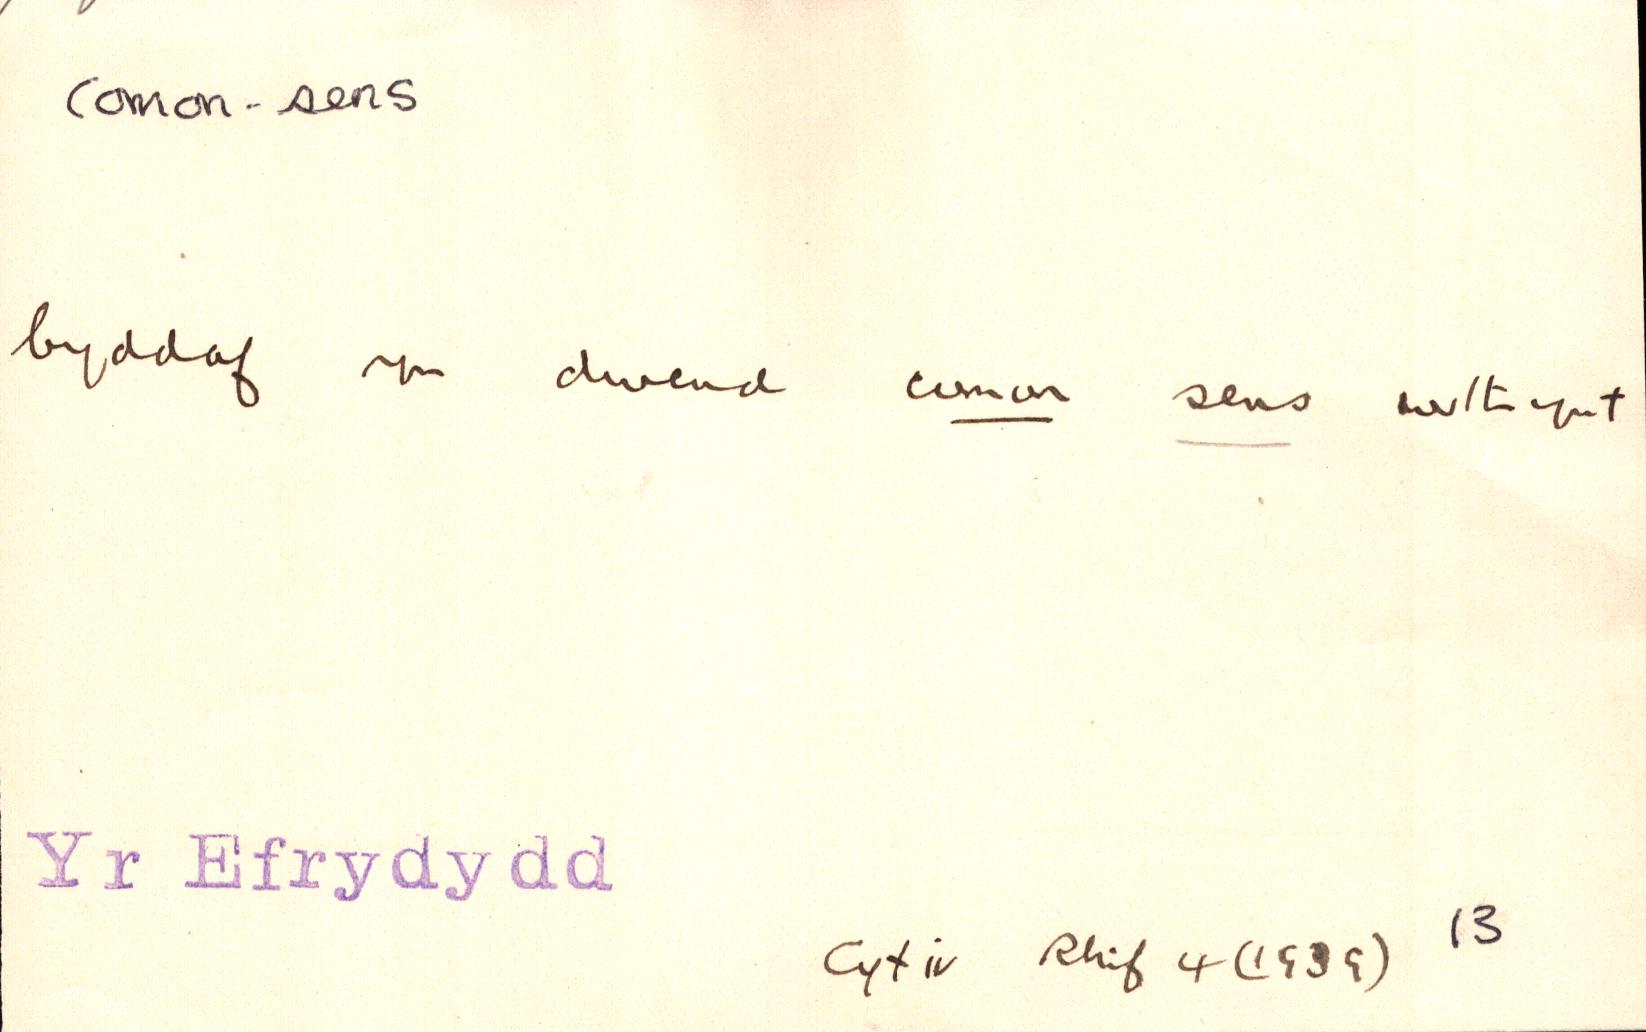 comon-sens
byddaf yn dweud comon sens wrthynt
Yr Efrydydd
Cyf iv Rhif 4 (1939) 13